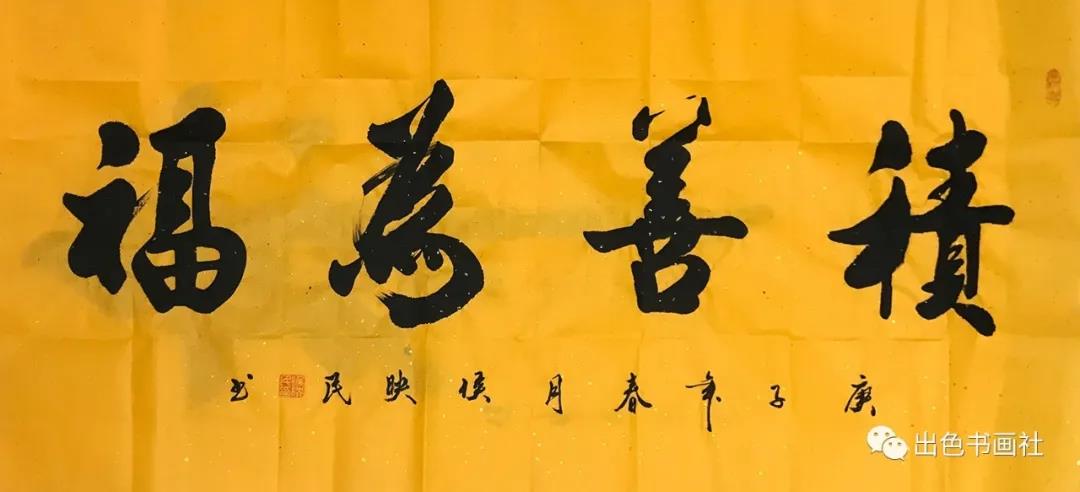 積善為福
庚子年春月侯映民书
出色书画社